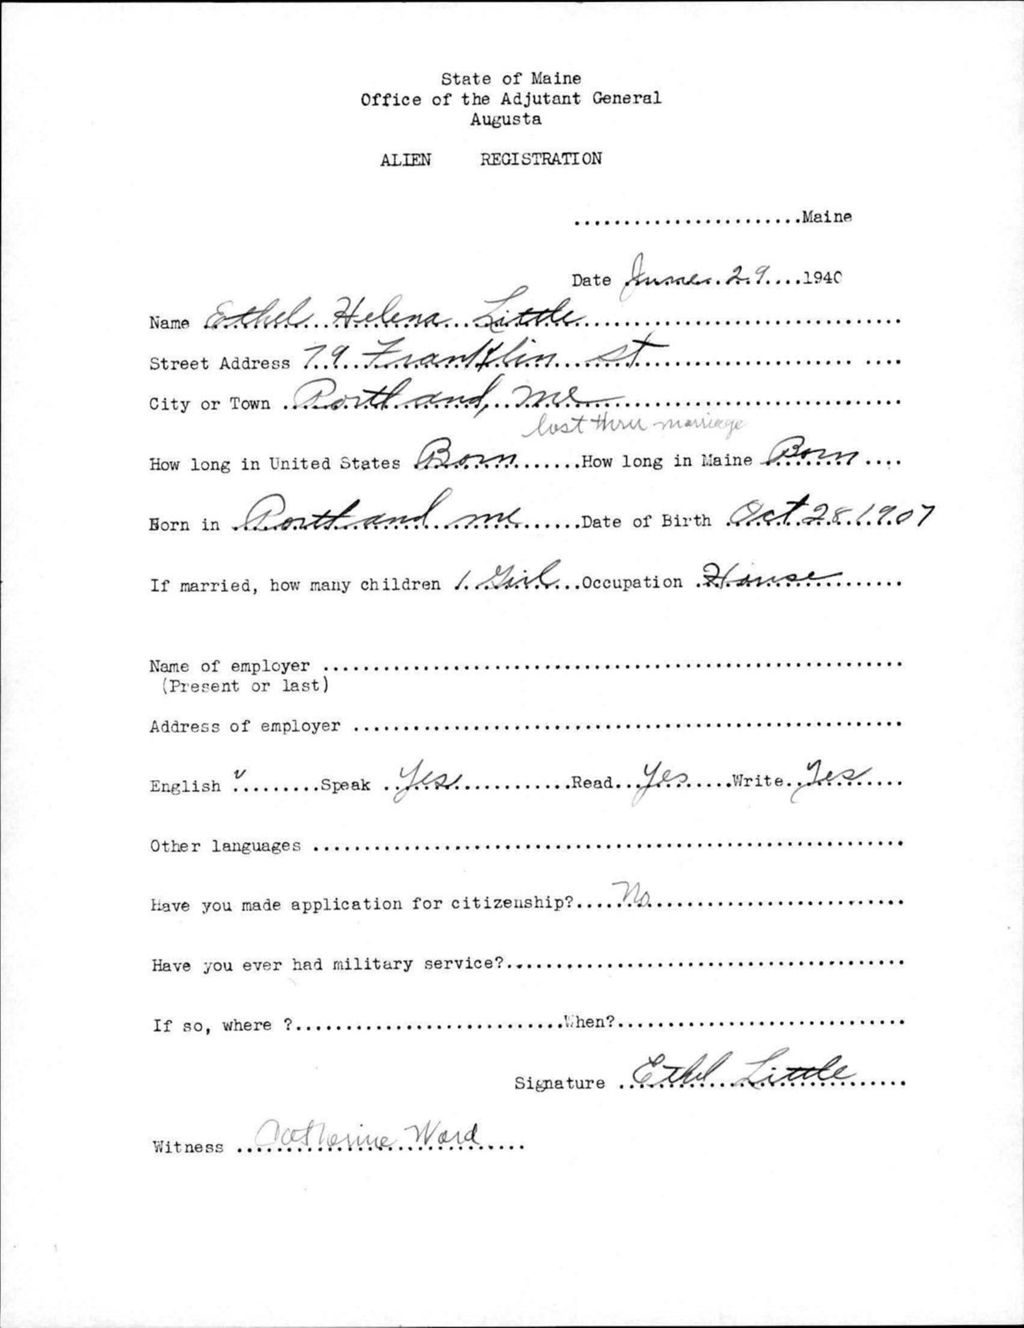 State of Maine
Office of the Adjutant General
Augusta
ALIEN REGISTRATION
.......................Maine
Date June 29....1940
Name Ethel Helena Little
Street Address 79 Franklin St
City or Town Portland, Me
lost thru marriage
How long in United States Born.......How long in Maine Born....
Born in Portland me......Date of Birth Oct 28 1907
If married, how many children 1 Girl...Occupation House
Name of employer
(Present or last)
Address of employer
English ✓.........Speak Yes............Read...Yes.....Write..Yes....
Other languages
Have you made application for citizenship?....No
Have you ever had military service?
If so, where ?...........................When?
Signature Ethel Little
Witness Catherine Ward